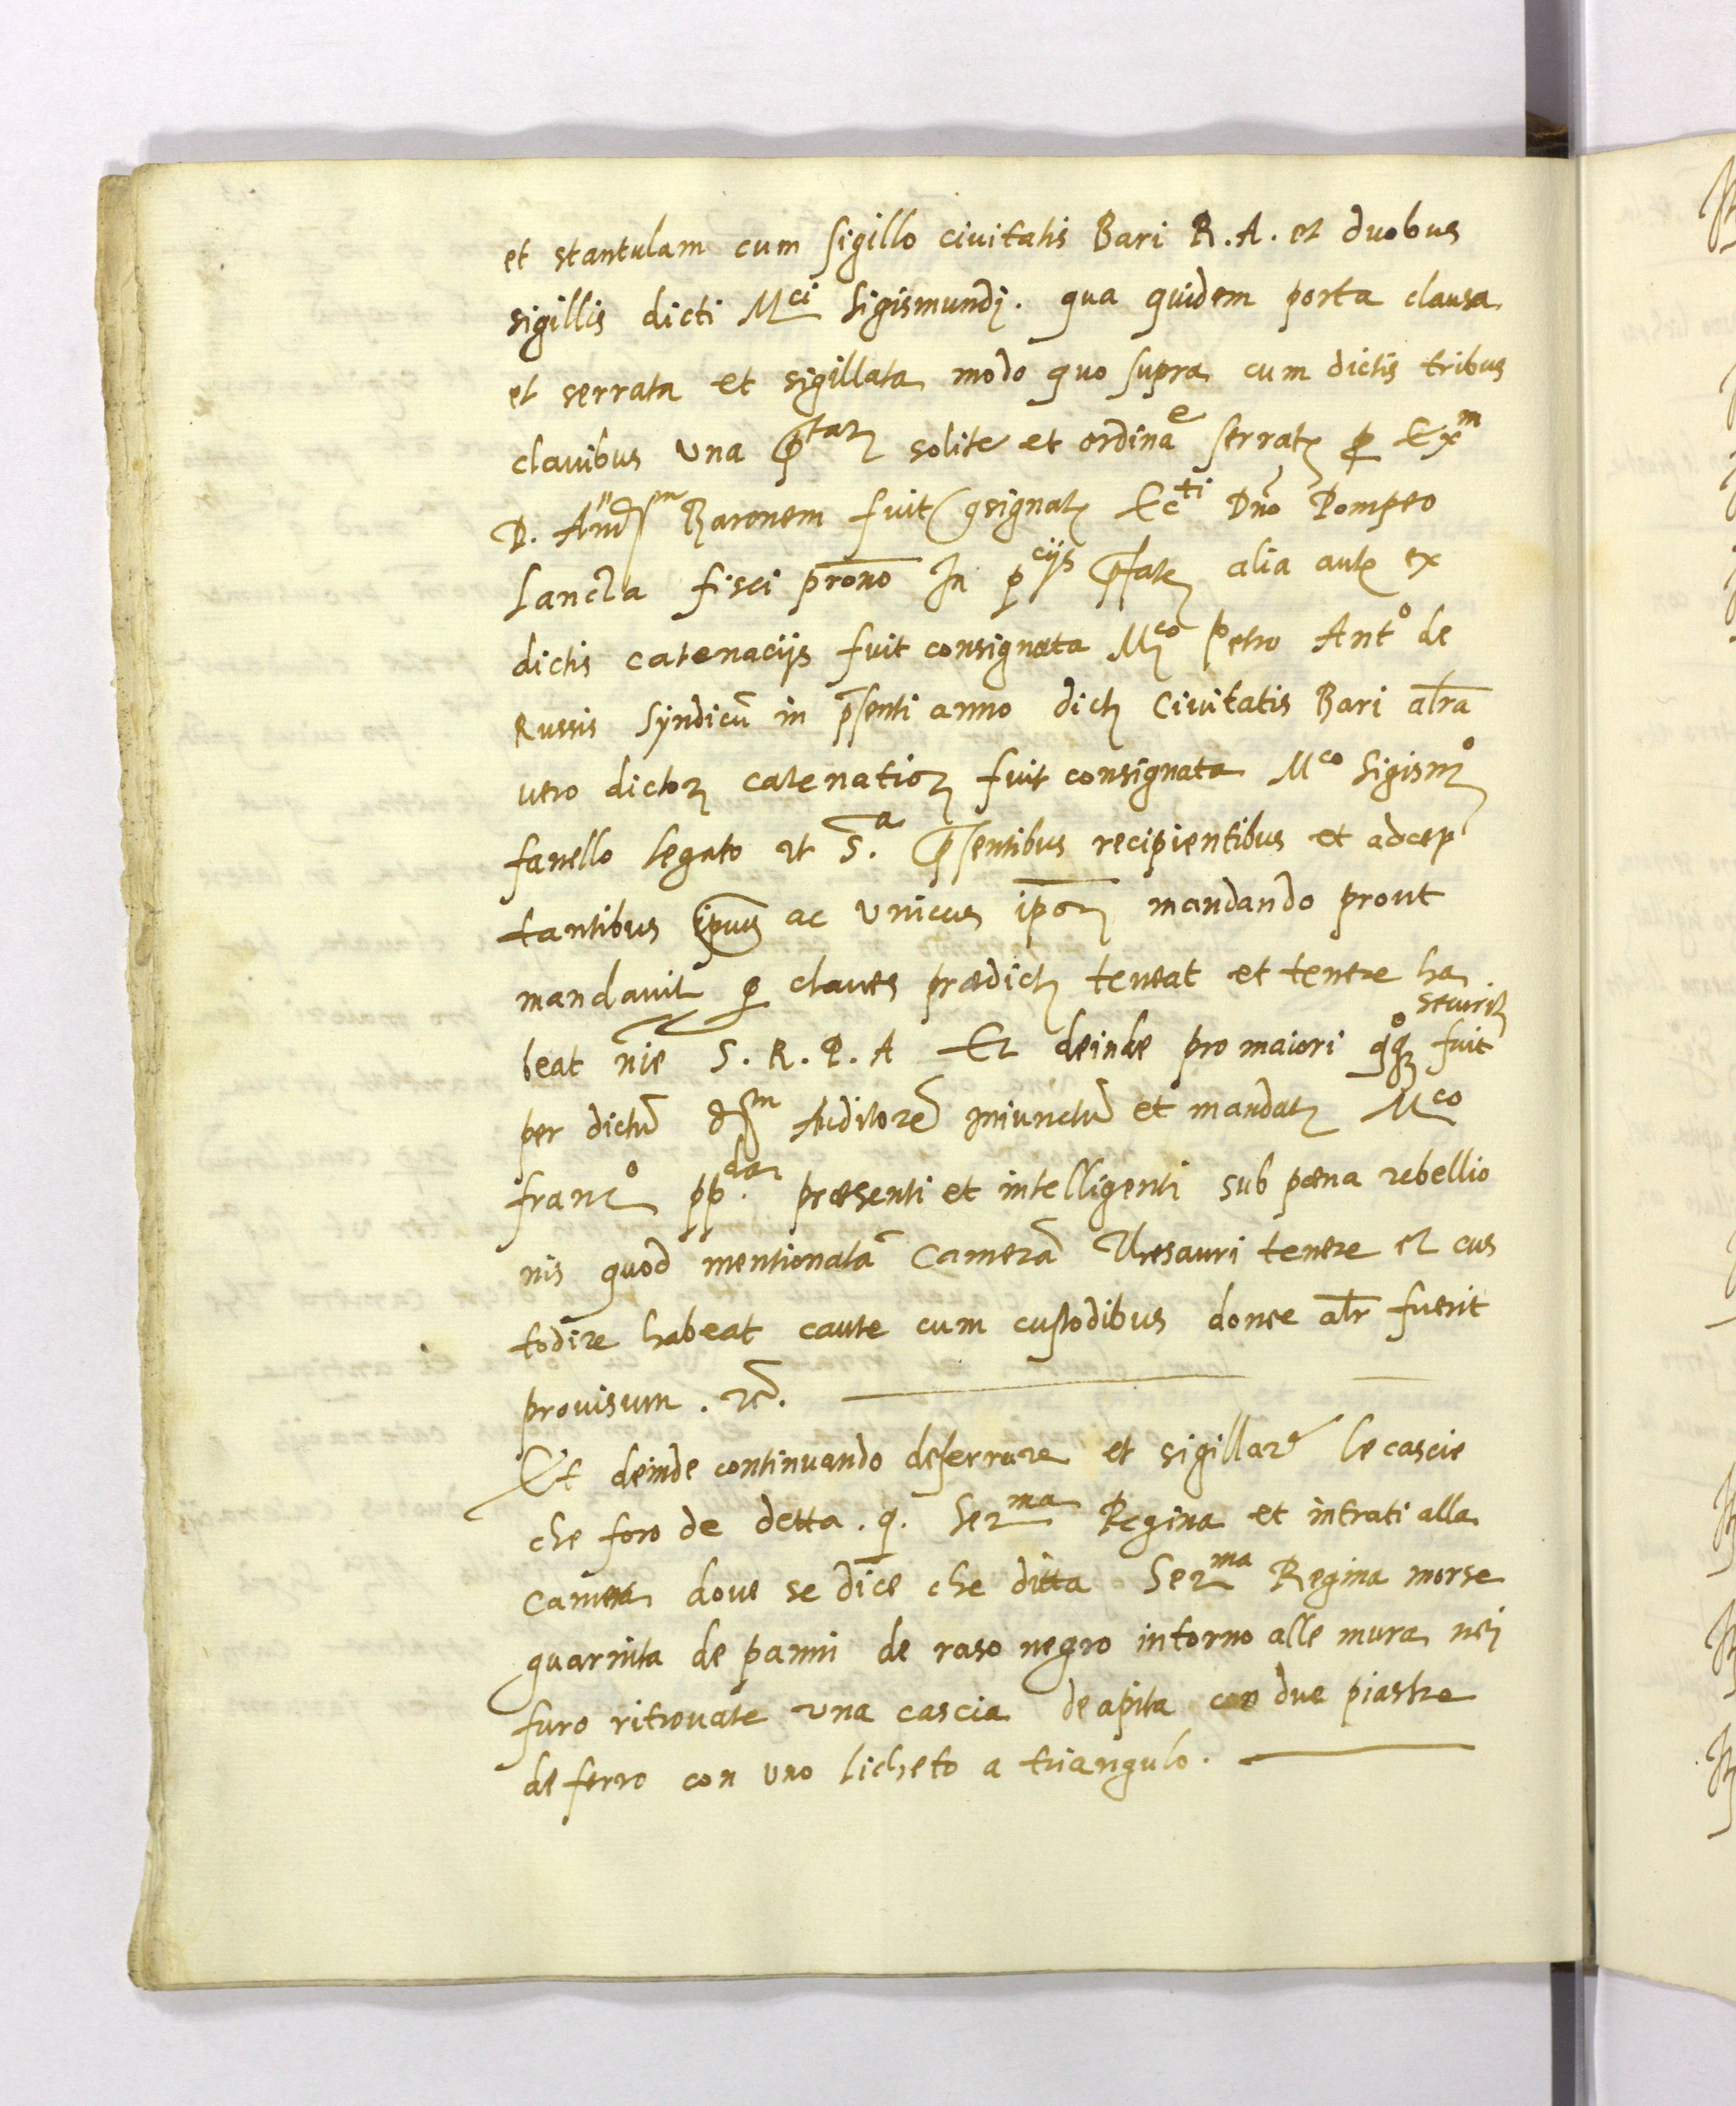 et stantulam cum sigillo ciuitatis Bari R. A. et duobus
sigillis dicti Mci Sigismundj. qua quidem porta clausa
et serrata et sigillata modo quo supra cum dictis tribus
clauibus una solite et ordinae serrat Exm
D. Baronem fuit gsignat Ecti Dno Pompeo
Lancta fisci prono In alia aut ex
dictis catenacijs fuit consignata Mco Petro Anto de
Russis Syndicu in psenti anno dict Ciuitatis Bari alra
uero dictor catenatior fuit consignata Mco Sigismo
fanello legato et S.a psentibus recipientibus et adcep
tantibus ipuus ac unicus ipor mandando prout
mandauit q claues prædict teneat et tenere ha
beat nie S. R. P. A Et deinde pro maiori securit fuit
per dictu Auditore iniunctu et mandat Mco
franco ppdar præsenti et intelligenti sub pæna rebellio
nis quod mentionata Camera Thesauri tenere et cus
todire habeat caute cum custodibus donec alr fuerit
prouisum .
Et deinde continuando de serrare et sigillare le cascie
che foro de detta .q. Serma Regina et intrati alla
camera doue se dice che ditta Serma Regina morse
guarnita de panni de raso negro intorno alle mura nei
furo ritrouate una cascia de apita con due piastre
de ferro con uno licheto a triangulo.